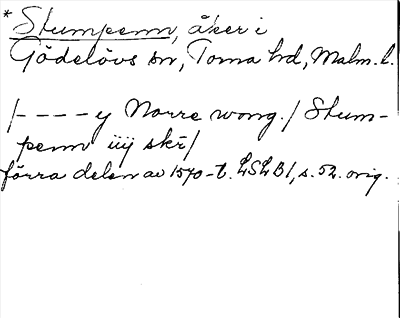 * Stumpenn, åker i
Gödelövs sn, Torna hd, Malm. l.
/ - - - - y Norre wong. / Stum-
penn iiij skr /
förra delen av 1570-t. LSLB1, s. 52. orig.